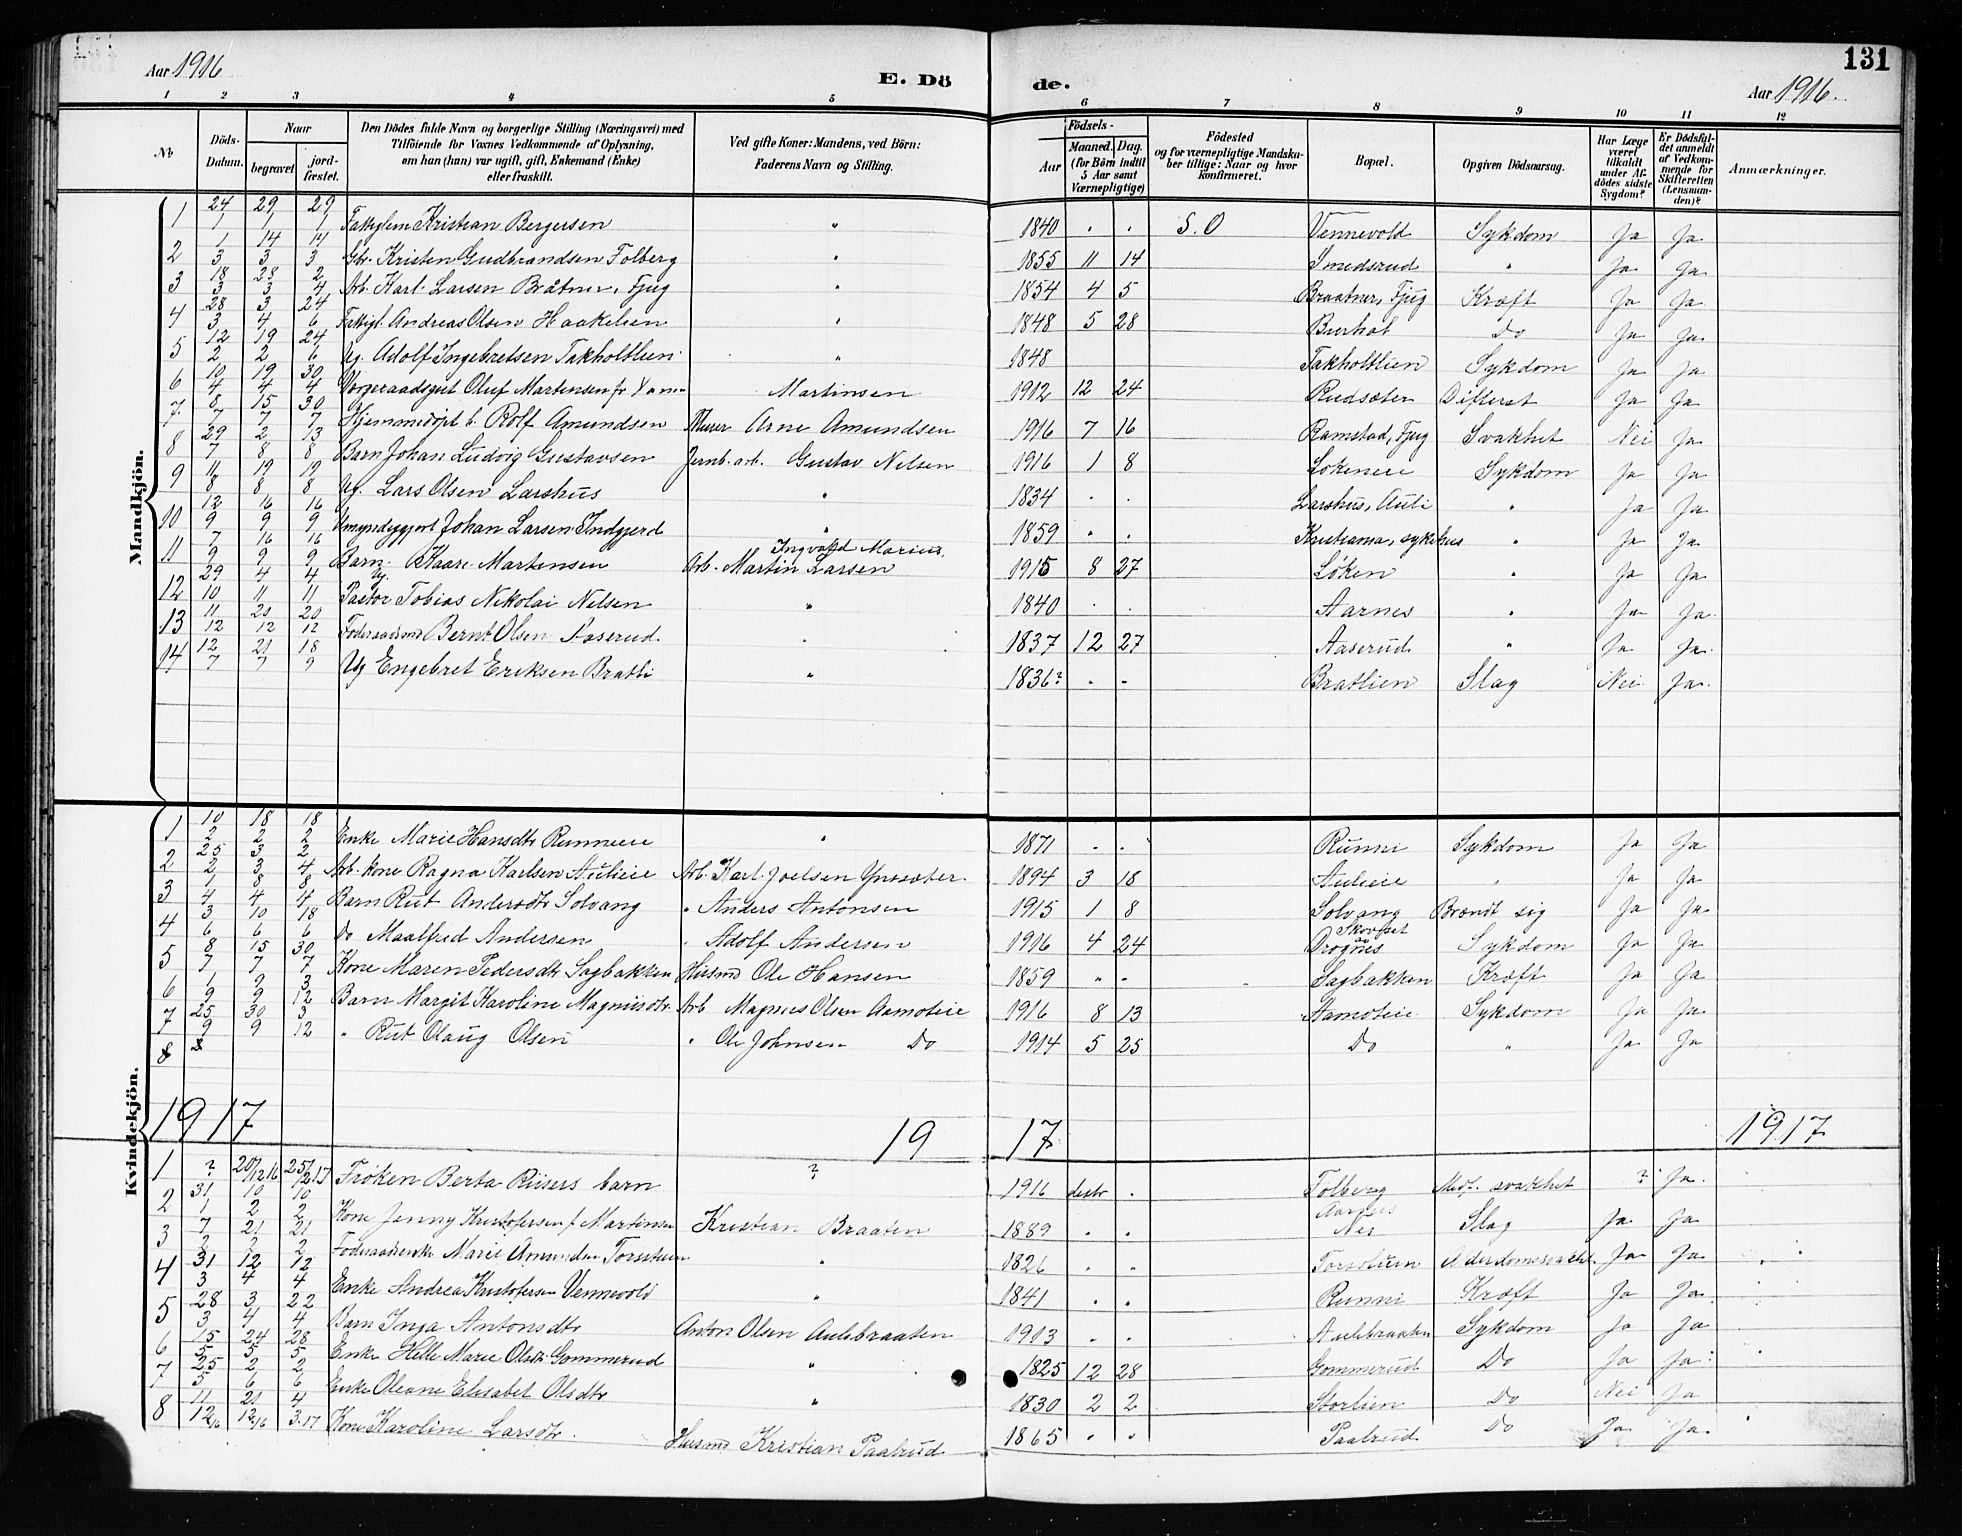 131
Aar 1916
E. Dö
de.
Aar 1916.
1 2 3 4 5 6 7 8 9 10 11 12
№
Döds-Datum.
Naar
begravet.
jord-fæstet.
Den Dödes fulde Navn og borgerlige Stilling (Næringsvei) med
Tilföiende for Voxnes Vedkommende af Oplysning,
om han (hun) var ugift, gift, Enkemand (Enke)
eller fraskilt.
Ved gifte Koner: Mandens, ved Börn:
Faderens Navn og Stilling.
Födsels-
Aar
Maaned. Dag.
(for Börn indtil
5 Aar samt
Værnepligtige)
Födested
og for værnepligtige Mandska-
ber tillige: Naar og hvor
konfirmeret.
Bopæl.
Opgiven Dödsaarsag.
Har Læge
været
tilkaldt
under Af-
dödes sidste
Sygdom?
Er Dödsfal-
det anmeldt
af Vedkom-
mende for
Skifteretten
(Lensman-
den)?
Anmærkninger.
Mandkjön.
1 24/1 29/1 29/1 Kristian Bergersen " 1840 . . S.O Vennevold Sykdom Ja Ja
2 1/3 14/3 14/3 Gbr. Kristen Gudbrandsen Folberg " 1855 11 14 Smedsrud " Ja Ja
3 18/3 28/3 2/4 Arb. Karl Larsen Bråtner, Fjug " 1854 4 5 Braatner, Fjug Kræft Ja Ja
4 28/3 3/4 24/6 Fattigl. Andreas Olsen Haakelien " 1848 5 28 Do Ja Ja
5 12/2 19/2 24/6 Ug. Adolf Ingebretsen Takholtlien " 1848 Takholtlien Sykdom Ja Ja
6 10/4 19/4 30/4 Vergeraadsgut Oluf Martensen Martinsen 1912 12 24 Rudsæter Difterit Ja Ja
7 8/7 15/7 30/7 Hjemmedøpt b. Rolf Amundsen Murer Arne Amundsen 1916 7 16 Ramstad, Fjug Svakhet Nei Ja
8 29/7 2/8 13/8 Barn Johan Ludvig Gustavsen Jernb. arb. Gustav Nilsen 1916 1 8 Løkeneie Sykdom Ja Ja
9 11/8 19/8 19/8 Ug. Lars Olsen Larshus " 1834 . . Larshus, Auli " Ja Ja
10 12/9 16/9 16/9 Umyndiggjort Johan Larsen Indgjerd " 1859 . . Kristiania, sykehus " Ja Ja
11 7/9 16/9 16/9 Barn Kaare Martensen Arb. Martin Ingvald Marius Larsen 1915 8 27 Løken " Ja Ja
12 29/10 4/11 4/11 Ug. Pastor Tobias Nikolai Nilsen " 1840 . . Aarnes " Ja Ja
13 11/12 20/12 20/12 Føderaadsmd Bernt Olsen Aaserud " 1837 12 27 Aaserud " Ja Ja
14 12/7 21/7 18/9 Ug Engebret Eriksen Bratli " 1836? - - Bratlien Slag Nei Ja
Kvindekjön.
1 10/2 18/2 18/2 Enke Marie Hansdtr Runnieie " 1871 - - Runni Sykdom Ja Ja
2 25/2 3/3 2/4 Arb. kone Ragna Karlsen Aulieie Arb. Karl Joelsen Ynsæter 1894 3 18 Aulieie " Ja Ja
3 1/4 8/4 8/4 Barn Rut Andersdtr Solvang " Anders Antonsen 1915 1 8 Solvang Brændt sig Ja Ja
4 3/6 10/6 18/6 Do Maalfrid Andersen " Adolf Andersen 1916 4 24 Drognes Sykdom Ja Ja
5 8/7 15/7 30/7 Kone Maren Pedersdtr Sagbakken Husmd Ole Hansen 1859 - - Sagbakken Kræft Ja Ja
6 1/9 9/9 3/12 Barn Margit Karoline Magnusdtr. Arb Magnus Olsen Aamoteie 1916 8 13 Aamoteie Sykdom Ja Ja
7 25/9 30/9 3/12 " Rut Olaug Olsen " Ole Johnsen Do 1914 5 25 Do " Ja Ja
8
1917 1917 1917
1 ? 20/12 16 25/2 17 Frøken Berta Riisers barn ? 1916 desbr . Folberg Medf. svakhet ? Ja
2 31/1 10/2 10/2 Kone Jenny Kristofersen f. Martinsen Kristian Braaten 1889 . . Aarnes Nes Slag Ja Ja
3 7/2 21/2 21/2 Føderaadsenke Marie " 1826 . . Alderdomssvakhet Ja Ja
4 31/3 12/4 12/4 Enke Andrea Kristofersen Vennevold " 1841 . . Runni Kræft Ja Ja
5 28/3 3/4 22/4 Barn Inga Antonsdtr Anton Olsen Aulibraaten 1913 . . Aulibraaten Sykdom Ja Ja
6 15/5 24/5 28/5 Enke Helle Marie Olsdtr Gommerud " 1825 12 28 Gommerud Do Ja Ja
7 25/5 2/6 2/6 Enke Oleane Elisabet Olsdtr " 1830 2 2 Storlien Do Nei Ja
8 11/12 16 21/12 16 4/3.17 Kone Karoline Larsdtr. Husmd Kristian Paalrud 1865 " " Paalrud Do Ja Ja